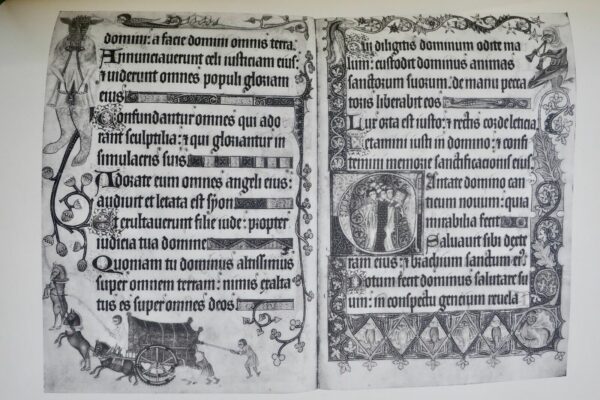 domini: a facie domini omnis terra.
Annunciaverunt celi iusticiam eius:
& viderunt omnes populi gloriam
eius
Confundantur omnes qui ado
rant sculptilia: & qui gloriantur in
simulacris suis
Adorate eum omnes angeli eius:
audivit et letata est syon
Et exultaverunt filie iude: propter
iudicia tua domine
Quoniam tu dominus altissimus
super omnem terram: nimis exalta
tus es super omnes deos.
Qui diligitis dominum odite ma
lum: custodit dominus animas
sanctorum suorum: de manu pecca
toris liberabit eos
Lux orta est iusto: & rectis corde leticia
Letamini iusti in domino: & confi
temini memorie sanctificacionis eius
Cantate domino can
ticum novum: quia
mirabilia fecit
Salvavit sibi dexte
ram eius: & brachium sanctum
Notum fecit dominus salutare su
um: in conspectu gencium revela